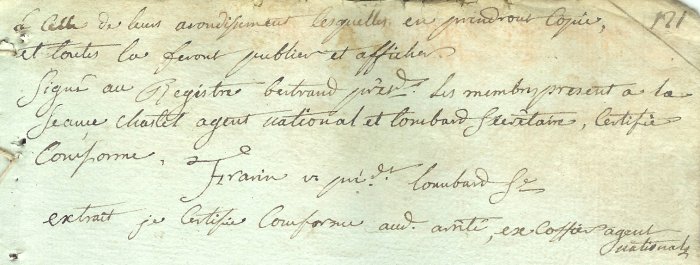 & Celle de leurs arondisement lesquelles en prendront Copie,
et toutes la feront publier et afficher
Signé au Registre bertrand présdt. Les membres present a la
Seance, Chatlet agent national et Lombard Secrétaire, Certifié
Conforme. vi présdt. Lombard Sre
extrait je Certifie Conforme aud. arrêté, agent
national